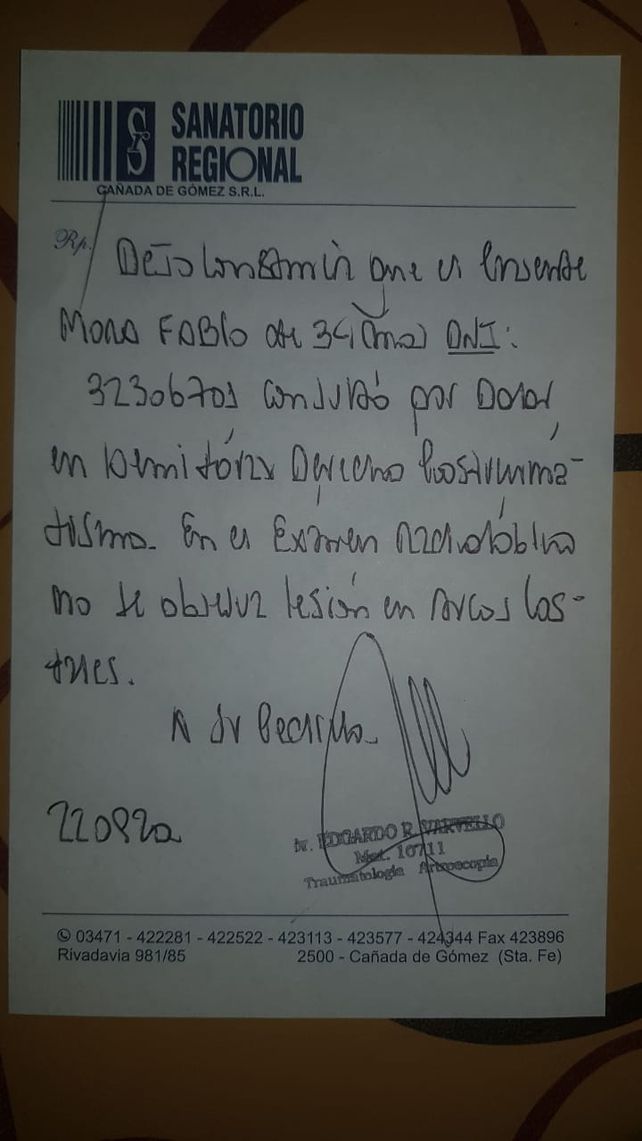 SANATORIO
REGIONAL
CAÑADA DE GÓMEZ S.R.L.
Rp.
Dejo constancia que el
de 34 años DNI:
32306701 consultó por Dolor
en Hemitórax Derecho Postrauma-
tismo. En el Exámen Radiológico
no se observa lesión en Arcos Cos-
tales.
A su Pedido
220920
Dr. EDGARDO R. VARVELLO
Mat. 10711
Traumatología Artroscopia
03471 - 422281 - 422522 - 423113 - 423577 - 424344 Fax 423896
Rivadavia 981/85 2500 - Cañada de Gómez (Sta. Fe)